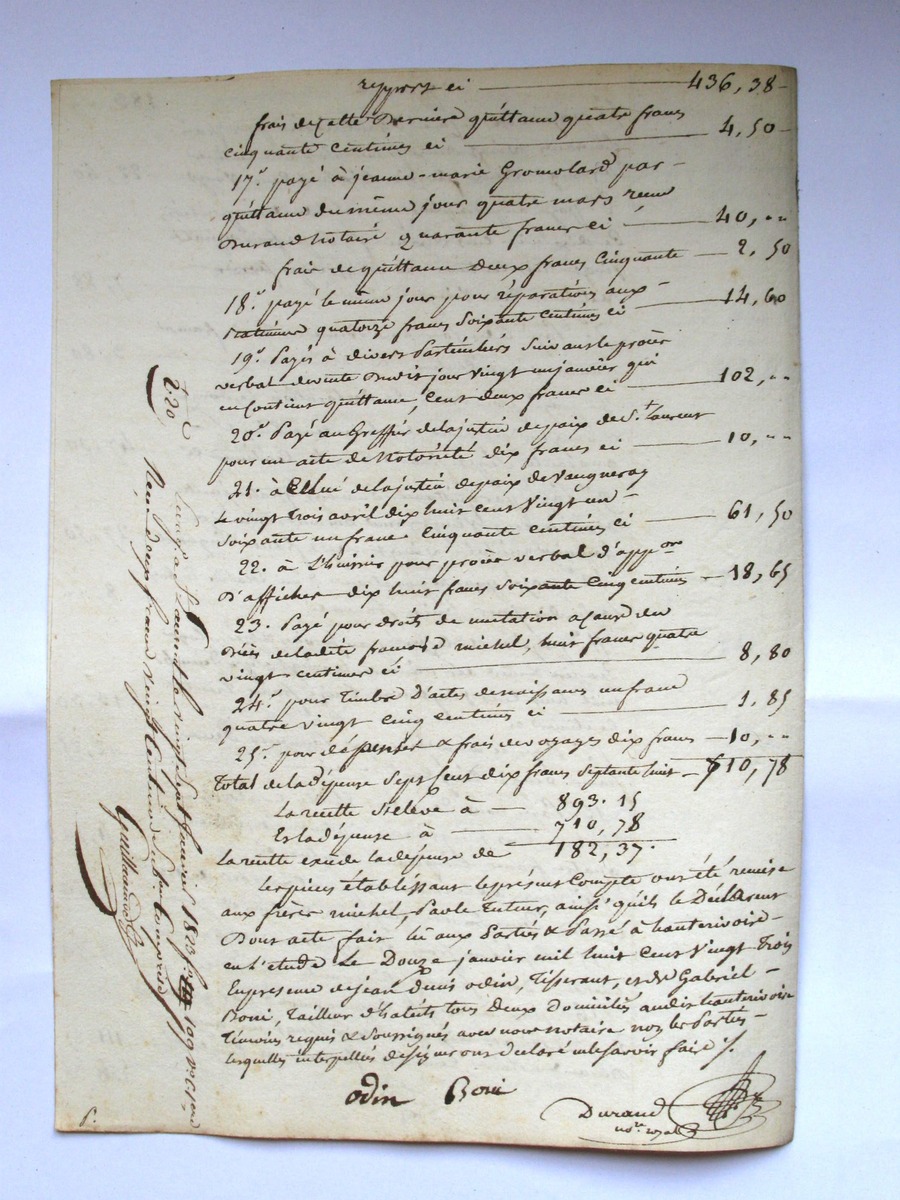 report ci 436,38
frais de cette derniere quittance quatre francs
cinquante centimes ci 4,50
17.° payé à jeanne-marie Gromolard par
quittance du même jour quatre mars recue
Durand Notaire quarante francs ci 40, ..
frais de quittance deux francs cinquante 2,50
18.° payé le même jour pour réparations aux
quatorze francs soixante centimes ci 14,60
19.° Payés à divers Particuliers suivant le procès
verbal de vente dudit jour vingt un janvier qui
en contient quittance, cent deux francs ci 102, ..
20.° Payé au Greffier de la justice de paix de St. Laurent
pour un acte de Notoriété dix francs ci 10, ..
21. à Celui de la justice de paix de Vaugneray
le vingt trois avril dix huit cent vingt un
soixante un francs cinquante centimes ci 61,50
22. à L'huissier pour procès verbal d'appon
d'affiches dix huit francs soixante cinq centimes 18,65
23. Payé pour droits de mutation a cause du
décès de ladite françoise michel, huit francs quatre
vingt centimes ci 8,80
24.° pour timbre d'actes de naissance un franc
quatre vingt cinq centimes ci 1,85
25.° pour dépenses & frais de voyages dix francs 10, ..
Total de la dépense sept cent dix francs septante huit 710,78
La recette s'élève à 893.15
Et la dépense à 710,78
La recette exède la dépense de 182,37.
Les pièces établissant le présent compte ont été remise
aux frères michel, par le Tuteur, ainsi qu'ils le Déclarent
Dont acte fait lû aux Parties & Passé à hauterivoire
en l'étude Le Douze janvier mil huit cent vingt trois
En présence de jean Denis odin, Tisserant, et de Gabriel
Boni, Tailleur d'habits tous deux domiciliés audit hauterivoire
Témoins requis & soussignés avec nous notaire non les Parties
lesquelles interpellés de signer ont déclaré ne le savoir faire ./.
odin Boni
Durand
nore royal
2.20c
le vingt sept janvier 1823 fo 199
Reçu deux francs vingt centimes
Guillaumot
P.